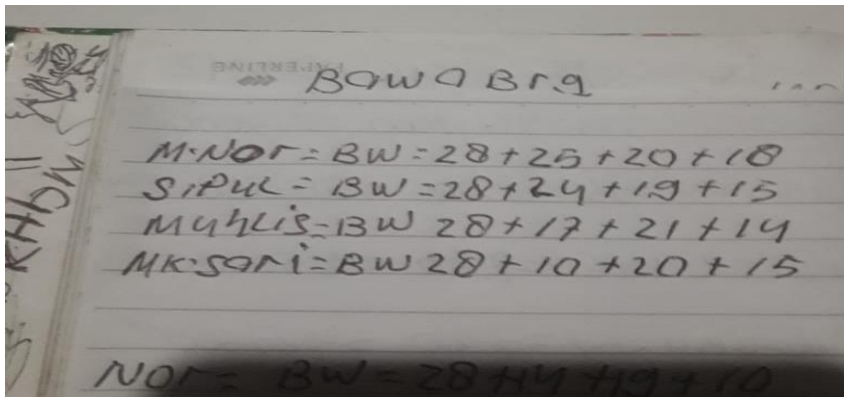 PAPERLINE
Bawa Brg
M.Nor = BW = 28 + 25 + 20 + 18
SiPul = BW = 28 + 24 + 19 + 15
Muhlis = BW 28 + 17 + 21 + 14
MK.sari = BW 28 + 10 + 20 + 15
Nor = BW = 28 + 14 + 19 + 10